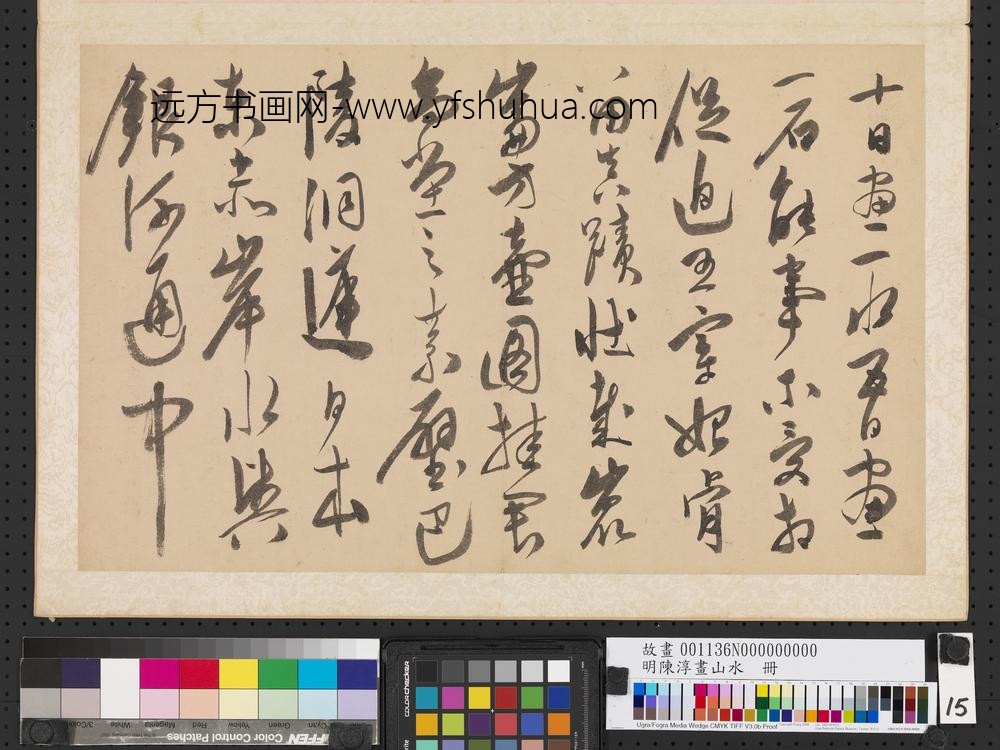 十日畫一水五日畫
一石能事不受相
促迫王宰始肯
留真蹟壯哉崑
崙方壺圖挂君
高堂之素壁巴
陵洞庭日本
東赤岸水與
銀河通中
远方书画网-www.yfshuhua.com
故畫 001136N000000000
明陳淳畫山水 冊
15
colorchecker
Ugra/Fogra Media Wedge CMYK TIFF V3.0b Proof
3/Color
White
Magenta
Red
Yellow
Green
Cyan
FFEN Color Control Patches